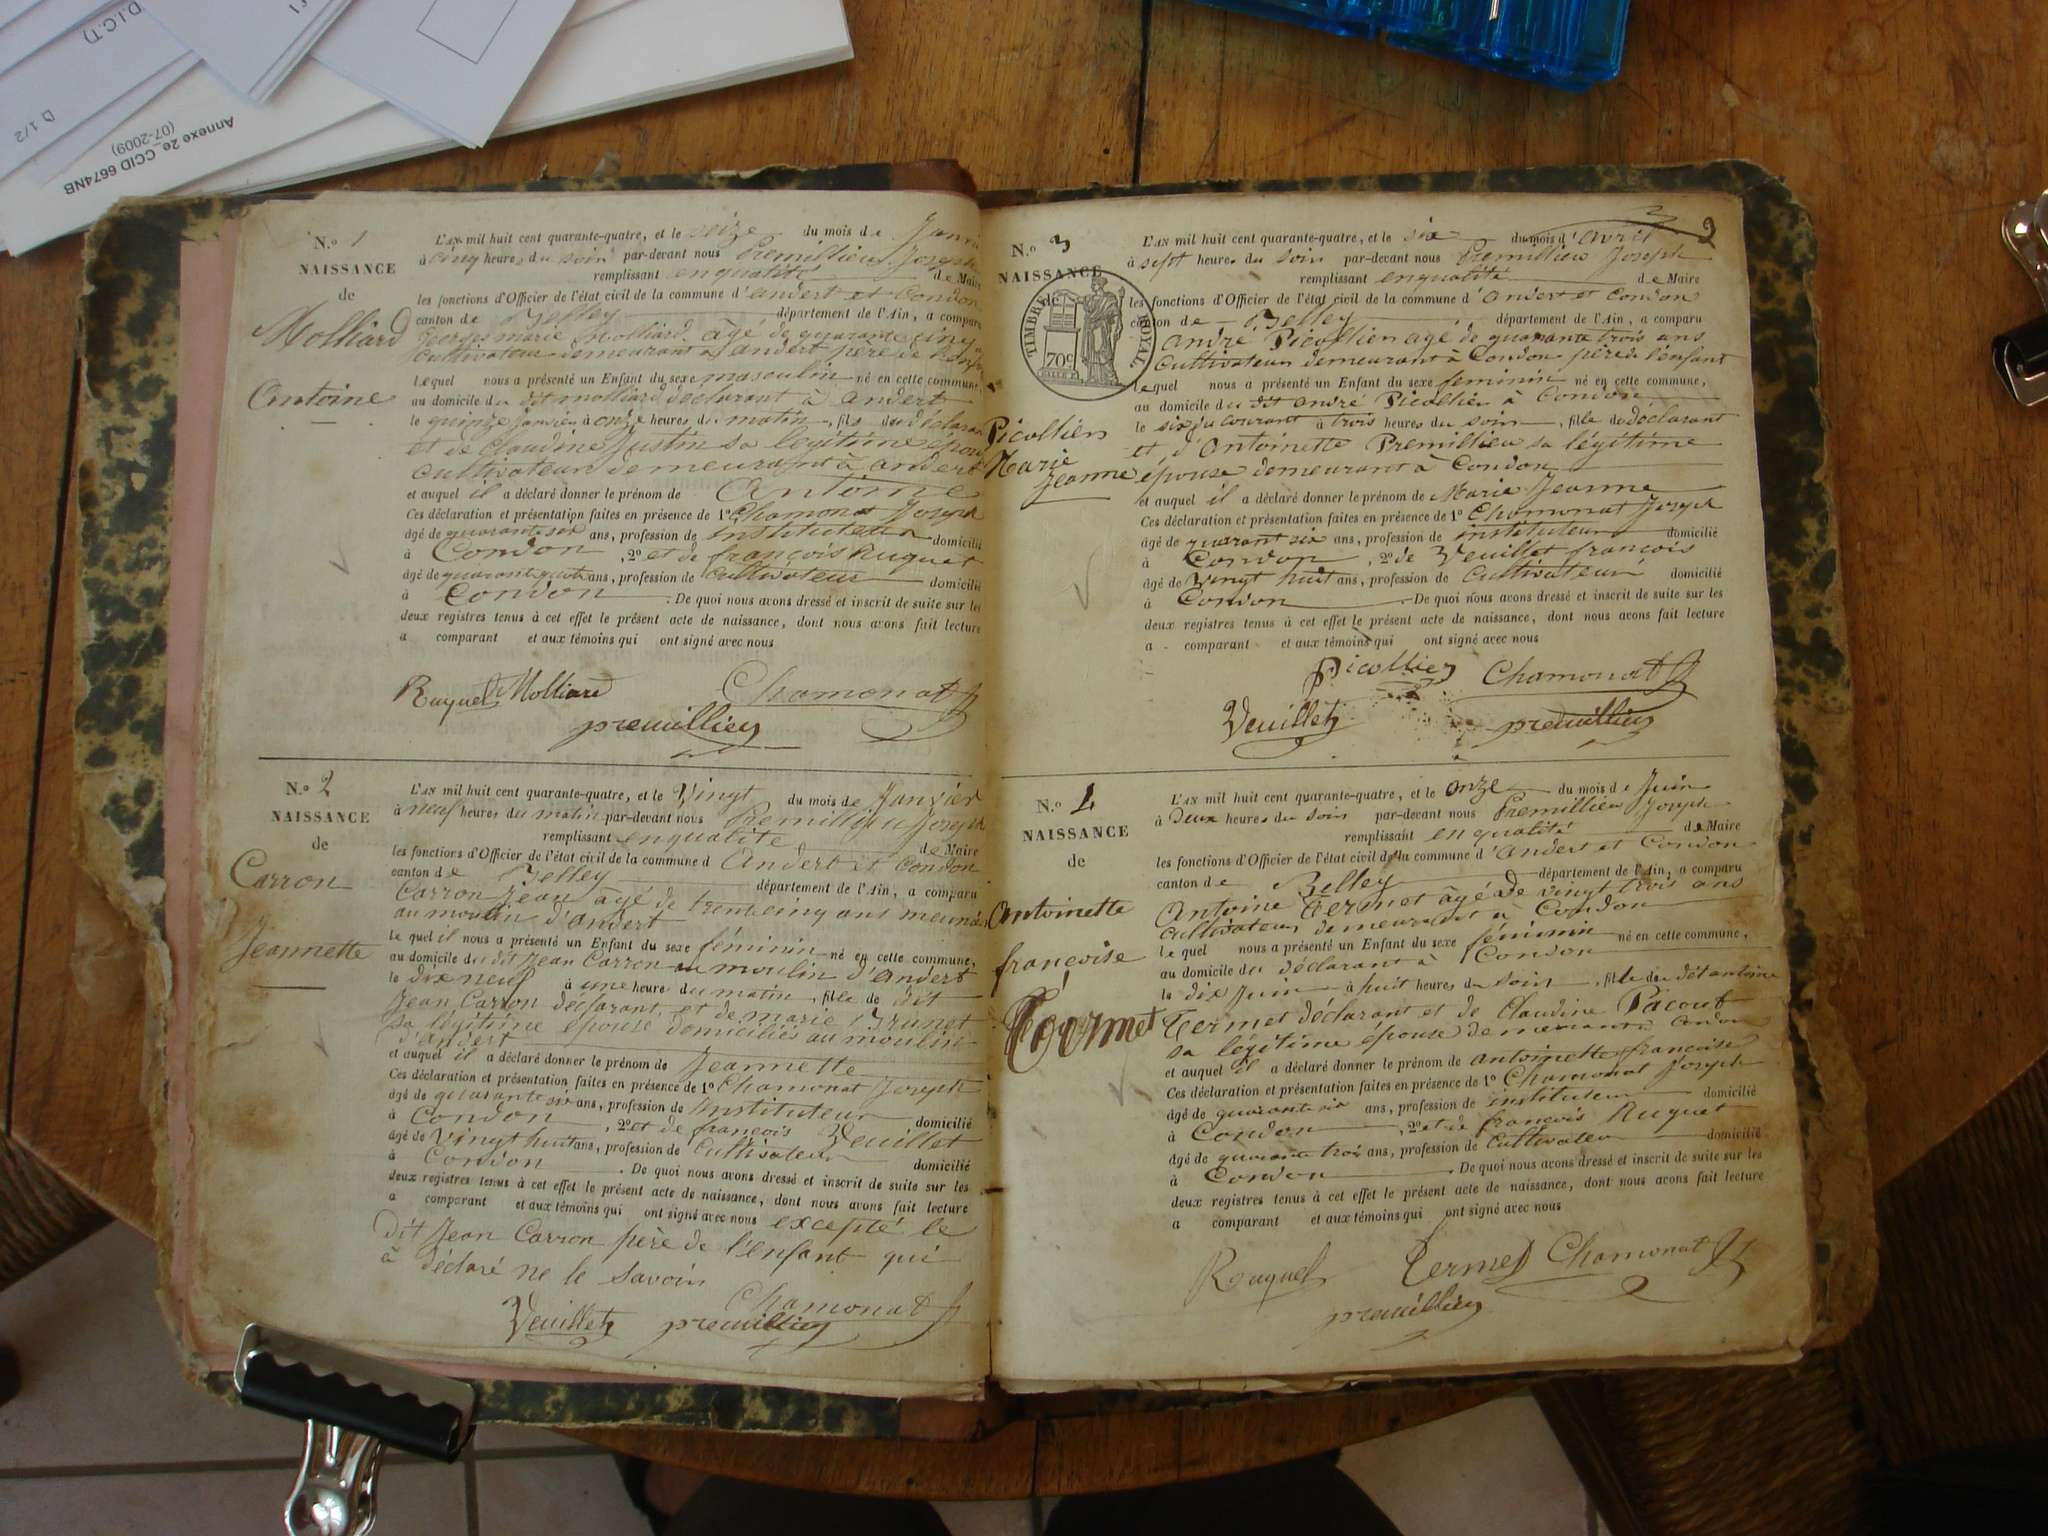 D.I.C.T)
D 1/2
Annexe 2e_CCID 6674NB
(07-2009)
N.o 1
NAISSANCE
de
Molliard
Antoine
L'AN mil huit cent quarante-quatre, et le seize du mois de Janvi
à cinq heures du soir par-devant nous Premillieu Joseph
remplissant enqualité de Maire
les fonctions d'Officier de l'état civil de la commune d'andert et Condon
canton de Belley département de l'Ain, a comparu
marie Molliard âgé de quarante cinq
cultivateur demeurant à andert père de l'enfant
lequel nous a présenté un Enfant du sexe masculin né en cette commune,
au domicile du dit molliard déclarant à andert
le quinze janvier à onze heures du matin, fils du déclarant
et de claudine Justin sa légitime épouse
cultivateur demeurant à andert
et auquel il a déclaré donner le prénom de Antoine
Ces déclaration et présentation faites en présence de 1o Chamonat Joseph
âgé de quarante six ans, profession de instituteur domicilié
à Condon, 2o et de françois Ruguet
âgé de quarante quatre ans, profession de cultivateur domicilié
à Condon. De quoi nous avons dressé et inscrit de suite sur les
deux registres tenus à cet effet le présent acte de naissance, dont nous avons fait lecture
a comparant et aux témoins qui ont signé avec nous
Ruguet Molliard Chamonat J
premillieu
N.o 2
NAISSANCE
de
Carron
Jeannette
L'AN mil huit cent quarante-quatre, et le Vingt du mois de Janvier
à neuf heures du matin par-devant nous Premillieu Joseph
remplissant enqualité de Maire
les fonctions d'Officier de l'état civil de la commune d Andert et Condon
canton de Belley département de l'Ain, a comparu
Carron Jean âgé de trente cinq ans meunier
au moulin d'andert
le quel il nous a présenté un Enfant du sexe féminin né en cette commune,
au domicile du dit Jean Carron au moulin d'andert
le dix neuf à une heure du matin, fille de dit
Jean Carron déclarant et de marie Brunet
sa légitime épouse domiciliés au moulin
d'andert
et auquel il a déclaré donner le prénom de Jeannette
Ces déclaration et présentation faites en présence de 1o Chamonat Joseph
âgé de quarante six ans, profession de instituteur domicilié
à Condon, 2o et de françois Veuillet
âgé de vingt huit ans, profession de cultivateur domicilié
à Condon. De quoi nous avons dressé et inscrit de suite sur les
deux registres tenus à cet effet le présent acte de naissance, dont nous avons fait lecture
a comparant et aux témoins qui ont signé avec nous excepté le
dit Jean Carron père de l'enfant qui
à déclaré ne le savoir
Chamonat J
Veuillet premillieu
N.o 3
NAISSANCE
de
TIMBRE ROYAL
70c
Picollien
Marie
Jeanne
L'AN mil huit cent quarante-quatre, et le six du mois d'avril
à sept heures du soir par-devant nous Premillieu Joseph
remplissant enqualité de Maire
les fonctions d'Officier de l'état civil de la commune d'andert et Condon
canton de Belley département de l'Ain, a comparu
andré Picollien agé de quarante trois ans
cultivateur demeurant à Condon père de l'enfant
lequel nous a présenté un Enfant du sexe féminin né en cette commune,
au domicile du dit andré Picollien à Condon
le six du courant à trois heures du soir, fille du déclarant
et d'Antoinette Premillieu sa légitime
épouse demeurant à Condon
et auquel il a déclaré donner le prénom de Marie Jeanne
Ces déclaration et présentation faites en présence de 1o Chamonat Joseph
âgé de quarant six ans, profession de instituteur domicilié
à Condon, 2o de Veuillet françois
âgé de Vingt huit ans, profession de cultivateur domicilié
à Condon. De quoi nous avons dressé et inscrit de suite sur les
deux registres tenus à cet effet le présent acte de naissance, dont nous avons fait lecture
a comparant et aux témoins qui ont signé avec nous
Picollien Chamonat J
Veuillet premillieu
N.o 4
NAISSANCE
de
Antoinette
françoise
Termet
L'AN mil huit cent quarante-quatre, et le onze du mois de Juin
à Deux heures du soir par-devant nous Premillieu Joseph
remplissant enqualité de Maire
les fonctions d'Officier de l'état civil de la commune d'andert et Condon
canton de Belley département de l'Ain, a comparu
Antoine Termet âgé de vingt trois ans
cultivateur demeurant à Condon
le quel nous a présenté un Enfant du sexe féminin né en cette commune,
au domicile du déclarant à Condon
le dix Juin à huit heures du soir, fille du dit antoine
Termet déclarant et de Claudine Pacout
sa légitime épouse demeurant Condon
et auquel il a déclaré donner le prénom de antoinette françoise
Ces déclaration et présentation faites en présence de 1o Chamonat Joseph
âgé de quarante six ans, profession de instituteur domicilié
à Condon, 2o et de françois Ruguet
âgé de quarante trois ans, profession de cultivateur domicilié
à Condon. De quoi nous avons dressé et inscrit de suite sur les
deux registres tenus à cet effet le présent acte de naissance, dont nous avons fait lecture
a comparant et aux témoins qui ont signé avec nous
Ruguet Termet Chamonat J
premillieu